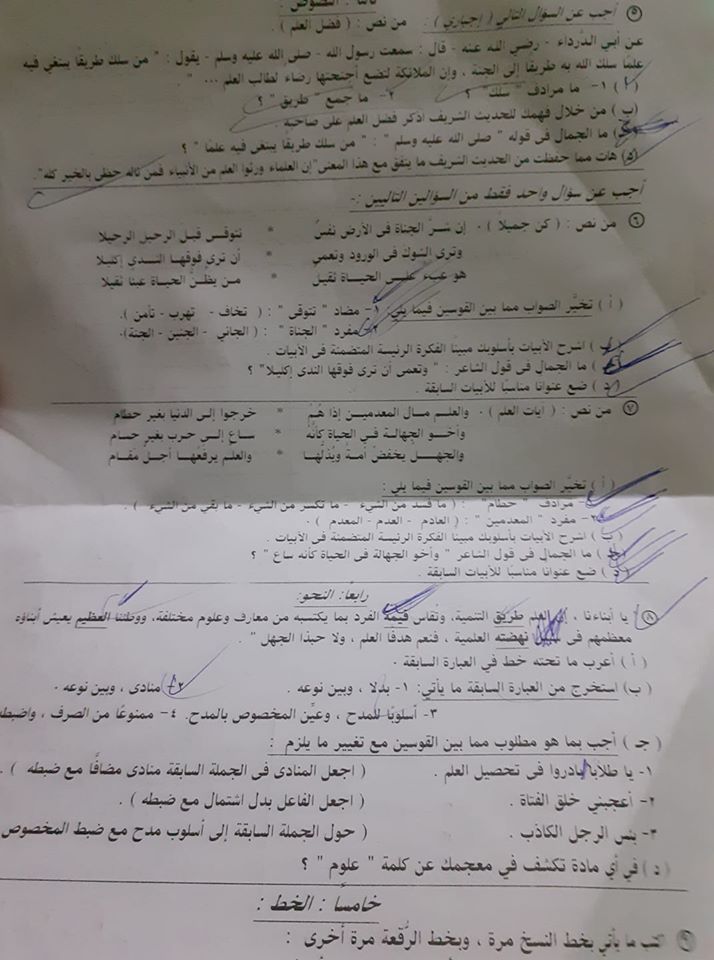 ثالثا : النصوص :
٥ أجب عن السؤال التالي ( إجباري ) : من نص : ( فضل العلم ) .
عن أبي الدرداء - رضي الله عنه - قال : سمعت رسول الله - صلى الله عليه وسلم - يقول : " من سلك طريقًا يبتغي فيه
علمًا سلك الله به طريقا إلى الجنة ، وإن الملائكة لتضع أجنحتها رضاء لطالب العلم ... " .
( أ ) ١- ما مرادف " سلك " ؟ ٢- ما جمع " طريق " ؟
( ب ) من خلال فهمك للحديث الشريف اذكر فضل العلم على صاحبه .
ما الجمال في قوله " صلى الله عليه وسلم " : " من سلك طريقًا يبتغى فيه علمًا " ؟
( د ) هات مما حفظت من الحديث الشريف ما يتفق مع هذا المعنى " إن العلماء ورثوا العلم من الأنبياء فمن ناله حظى بالخير كله " .
أجب عن سؤال واحد فقط من السؤالين التاليين :-
٦ من نص : ( كن جميلاً ) . إن شرَّ الجناة فى الأرض نفسٌ * تتوقى قبل الرحيل الرحيلا
وترى الشوك فى الورود وتعمى * أن ترى فوقها الندى إكليلا
هو عبء على الحياة ثقيل * من يظنُّ الحياة عبئا ثقيلا
( أ ) تخيَّر الصواب مما بين القوسين فيما يلي : ١- مضاد " تتوقى " : ( تخاف - تهرب - تأمن ) .
٢- مفرد " الجناة " : ( الجاني - الجنين - الجنة ) .
( ب ) اشرح الأبيات بأسلوبك مبينًا الفكرة الرئيسة المتضمنة فى الأبيات .
ما الجمال فى قول الشاعر : " وتعمى أن ترى فوقها الندى إكليلا " ؟
( د ) ضع عنوانا مناسبًا للأبيات السابقة .
٧ من نص : ( آيات العلم ) . والعلم مال المعدمين إذا هُمُ * خرجوا إلى الدنيا بغير حطام
وأخُو الجهالة فى الحياة كأنَّه * ساعٍ إلى حرب بغير حسام
والجهل يخفض أمةً ويُذلُّها * والعلم يرفعُها أجل مقام
( أ ) تخيَّر الصواب مما بين القوسين فيما يلي :
مرادف " حطام " : ( ما فسد من الشيء - ما تكسر من الشيء - ما بقي من الشيء ) .
٢- مفرد " المعدمين " : ( العادم - العدم - المعدم ) .
( ب ) اشرح الأبيات بأسلوبك مبينًا الفكرة الرئيسة المتضمنة فى الأبيات .
( ج ) ما الجمال فى قول الشاعر " وأخو الجهالة فى الحياة كأنه ساع " ؟
( د ) ضع عنوانا مناسبًا للأبيات السابقة .
رابعًا : النحو :
٨ يا أبناءنا ، إن العلم طريق التنمية، وتُقاس قيمة الفرد بما يكتسبه من معارف وعلوم مختلفة، ووطننا العظيم يعيش أبناؤه
معظمهم فى نهضته العلمية ، فنعم هدفًا العلم ، ولا حبذا الجهل " .
( أ ) أعرب ما تحته خط في العبارة السابقة .
( ب ) استخرج من العبارة السابقة ما يأتي: ١- بدلا ، وبين نوعه . ٢- منادى ، وبين نوعه .
٣- أسلوبًا للمدح ، وعيِّن المخصوص بالمدح. ٤- ممنوعًا من الصرف ، واضبطه
( جـ ) أجب بما هو مطلوب مما بين القوسين مع تغيير ما يلزم :
١- يا طلابًا بادروا فى تحصيل العلم . ( اجعل المنادى فى الجملة السابقة منادى مضافًا مع ضبطه ) .
٢- أعجبتني خلق الفتاة . ( اجعل الفاعل بدل اشتمال مع ضبطه ) .
٣- بئس الرجل الكاذب . ( حول الجملة السابقة إلى أسلوب مدح مع ضبط المخصوص
( د ) في أي مادة تكشف في معجمك عن كلمة " علوم " ؟
خامسًا : الخط :
٩ اكتب ما يأتي بخط النسخ مرة ، وبخط الرُّقعة مرة أخرى :